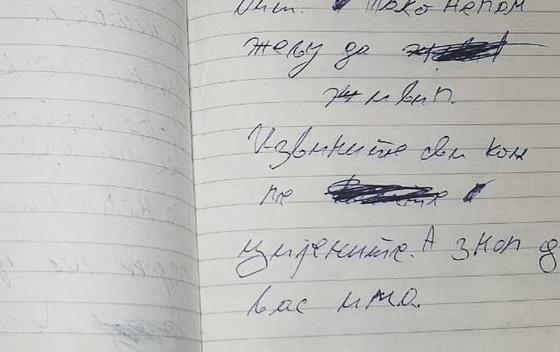 Тако немам
жељу да
живим.
Извините сви кои
ме
цијените. А знам д
вас има.